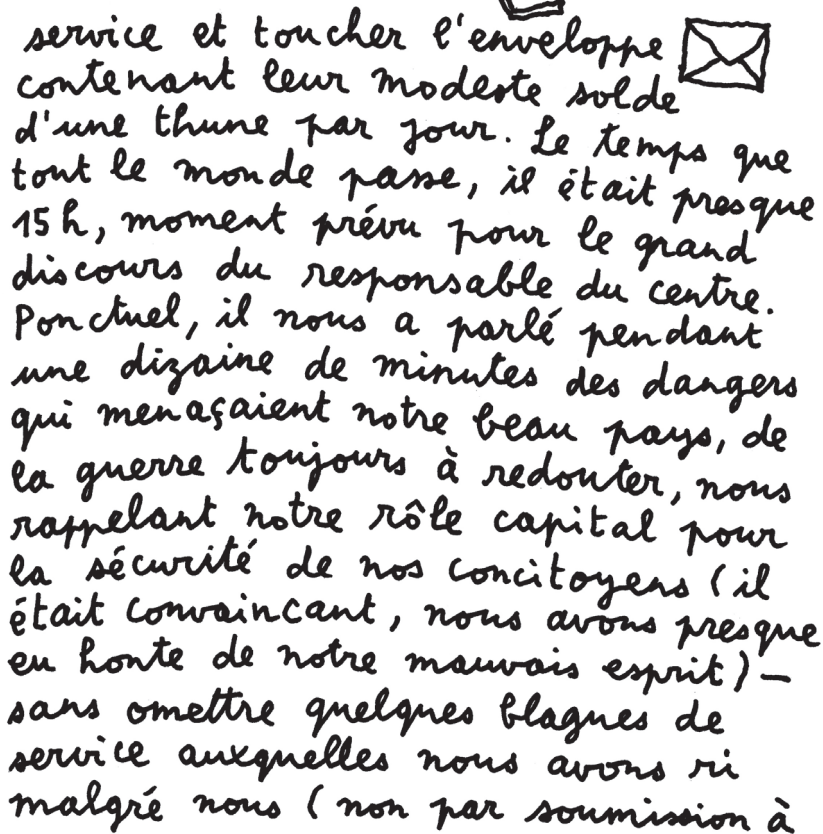 service et toucher l'enveloppe
contenant leur modeste solde
d'une thune par jour. Le temps que
tout le monde passe, il était presque
15h, moment prévu pour le grand
discours du responsable du centre.
Ponctuel, il nous a parlé pendant
une dizaine de minutes des dangers
qui menaçaient notre beau pays, de
la guerre toujours à redouter, nous
rappelant notre rôle capital pour
la sécurité de nos concitoyens (il
était convaincant, nous avons presque
eu honte de notre mauvais esprit) —
sans omettre quelques blagues de
service auxquelles nous avons ri
malgré nous (non par soumission à